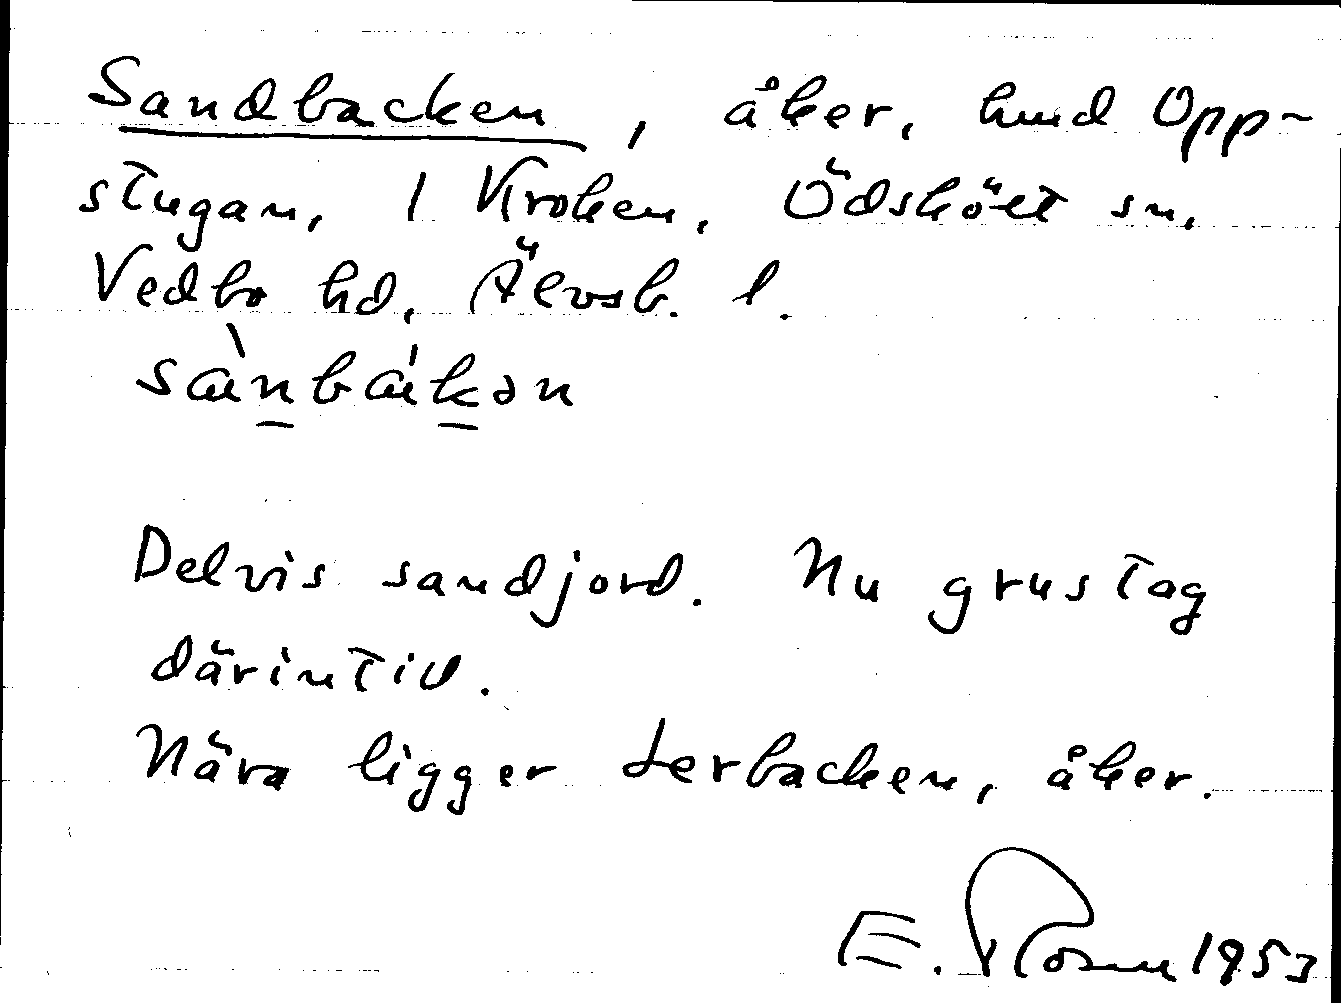 Sandbacken, åker, hmd Opp-
stugan, 1 Kroken, Ödsköłt sn,
Vedbo hd, Älvsb. l.
sànbákən
Delvis sandjord. Nu grustag
därintill.
Nära ligger Lerbacken, åker.
E. Rosen 1953